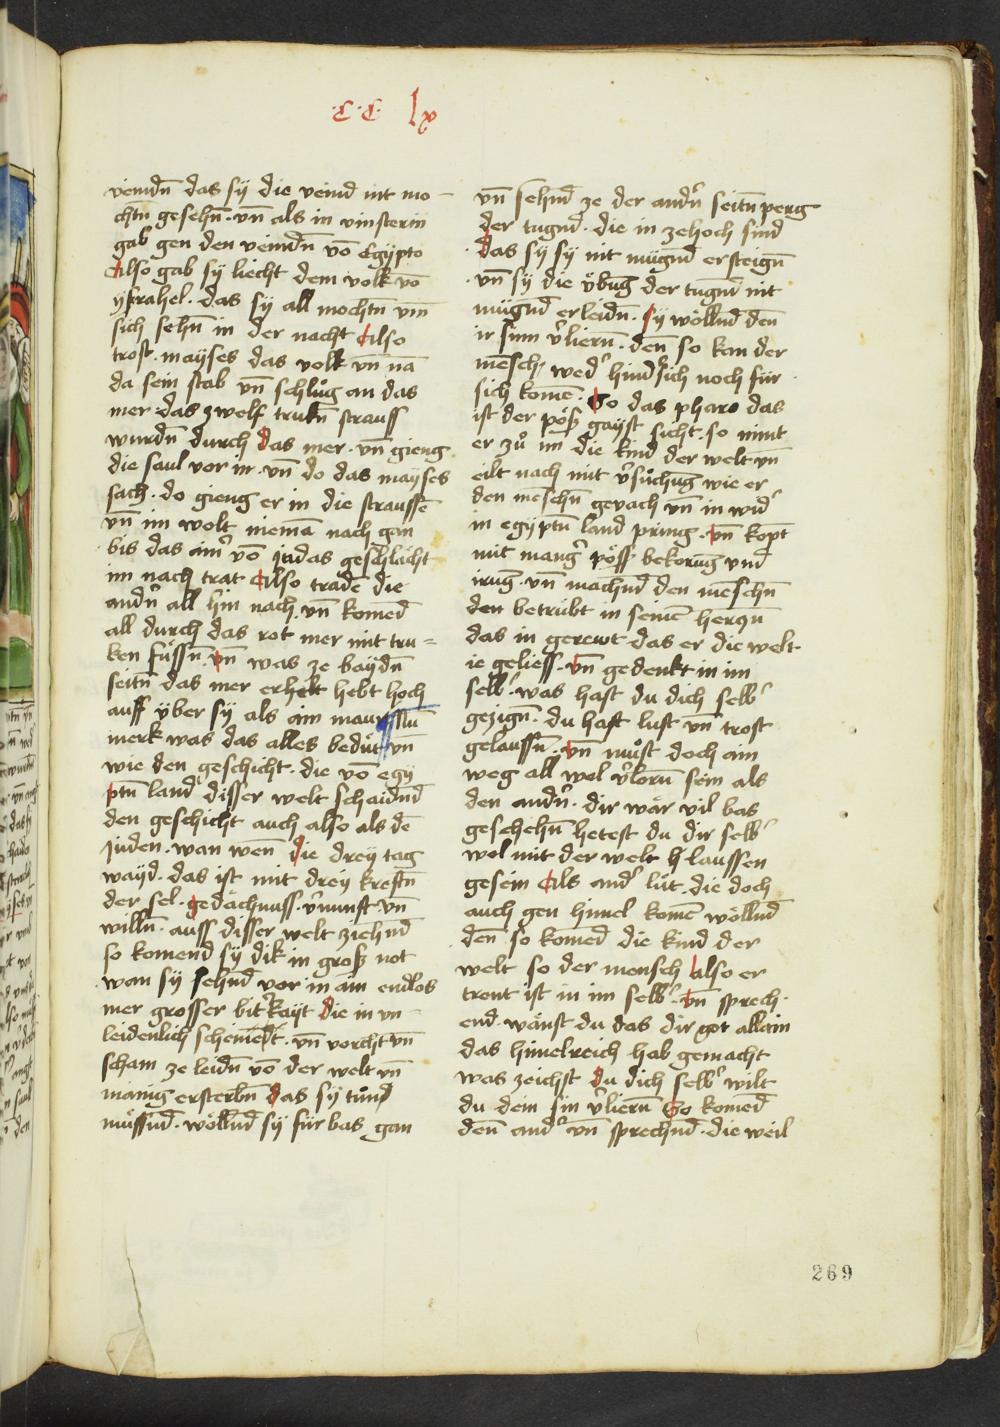 ·C·C· lx
veindn̄ das sÿ die veind nit mo-
chtn̄ gesehn̄· vn̄ als in vinsterin
gab gen den veindn̄ vō Egypto
Also gab sÿ liecht dem volk vō
ysrahel· das sÿ all mochtn̄ vm̄
sich sehn̄ in der nacht Also
trost· mayses das volk vn̄ nā
da sein stab vn̄ schlůg an das
mer das zwelf trukn̄ strauss
wurdn̄ durch das mer· vn̄ gieng
die saul vor in· vn̄ do das mayses
sach· do gieng er in die straussē
vn̄ im wolt niemā nach gan
bis das ain̉ vō judas geschlächt
im nach trat Also tradē die
andn̉ all hin nach vn̄ komēd
all durch das rot mer mit tru=
ken füssn̄· vn̄ was ze baÿdn̄
seitn̄ das mer erhebt hebt hoch
auff ÿber sÿ als ain maur
merk was das alles bedüt vn̄
wie den geschicht· die vō egÿ
ptn̄ land disser welt schaidnd̄
den geschicht auch also als dē
juden· wan wen̄ die dreÿ tag
wayd· das ist mit dreÿ kreftn̄
der sel· gedächnuss· v̉nunft vn̄
willn̄· auss disser welt ziehnd̄
so komend sÿ dik in groß not
wan sÿ sehnd̄ vor in ain endlos
mer grosser bit̉kayt Die in vn-
leidenlich scheinēt· vn̄ vorcht vn̄
scham ze leidn̄ vō der welt vn̄
manig ersterbn̄ das sÿ tůnd
müssnd̄· wöllnd̄ sÿ für bas gan
vn̄ sehnd̄ ze der andn̉ seitn̄ perg
der tugnd̄· die in zehoch sind
das sÿ sÿ nit mügnd̄ ersteign̄
vn̄ sÿ die v̈bun̄g der tugnd̄ nit
mügnd̄ erleidn̄· sÿ wöllnd̄ den̄
ir sinn v̉liern̄· den̄ so kan der
mēsch wed̉ hind̉sich noch für
sich komē· So das pharo das
ist der pöß gayst sicht· so nimt
er zů im die kind der welt vn̄
eilt nach mit v̉sůchun̄g wie er
den mēschn̄ gevach vn̄ in wid̉
in egÿptn̄ land pring· vn̄ kopt̄
mit mang̉ pöss bekorun̄g vnd
irun̄g· vn̄ machnd̄ den mēschn̄
den betrübt in seinē herczn̄
das in gerewt das er die welt
ie geliess· vn̄ gedenkt in im
selb̉· was hast du dich selb̉
gezign̄· du hast lust vn̄ trost
gelaussn̄· vn̄ můst doch ain
weg all wel v̉lorn̄ sein als
den andn̉· dir wär vil bas
geschehn̄ hetest du dir selb̉
wol mit der welt laussen
gesein Als and̉ lüt· die doch
auch gen himel komē wöllnd̄
den̄ so komēd die kind der
welt so der mensch also er
trent ist in im selb̉· vn̄ sprech-
end· wänst du das dir got allain
das himelreich hab gemacht
was zeichst du dich selb̉ wilt
du dein sin v̉liern̄ So komēd
den̄ and̉ vn̄ sprechnd̄· die weil
269